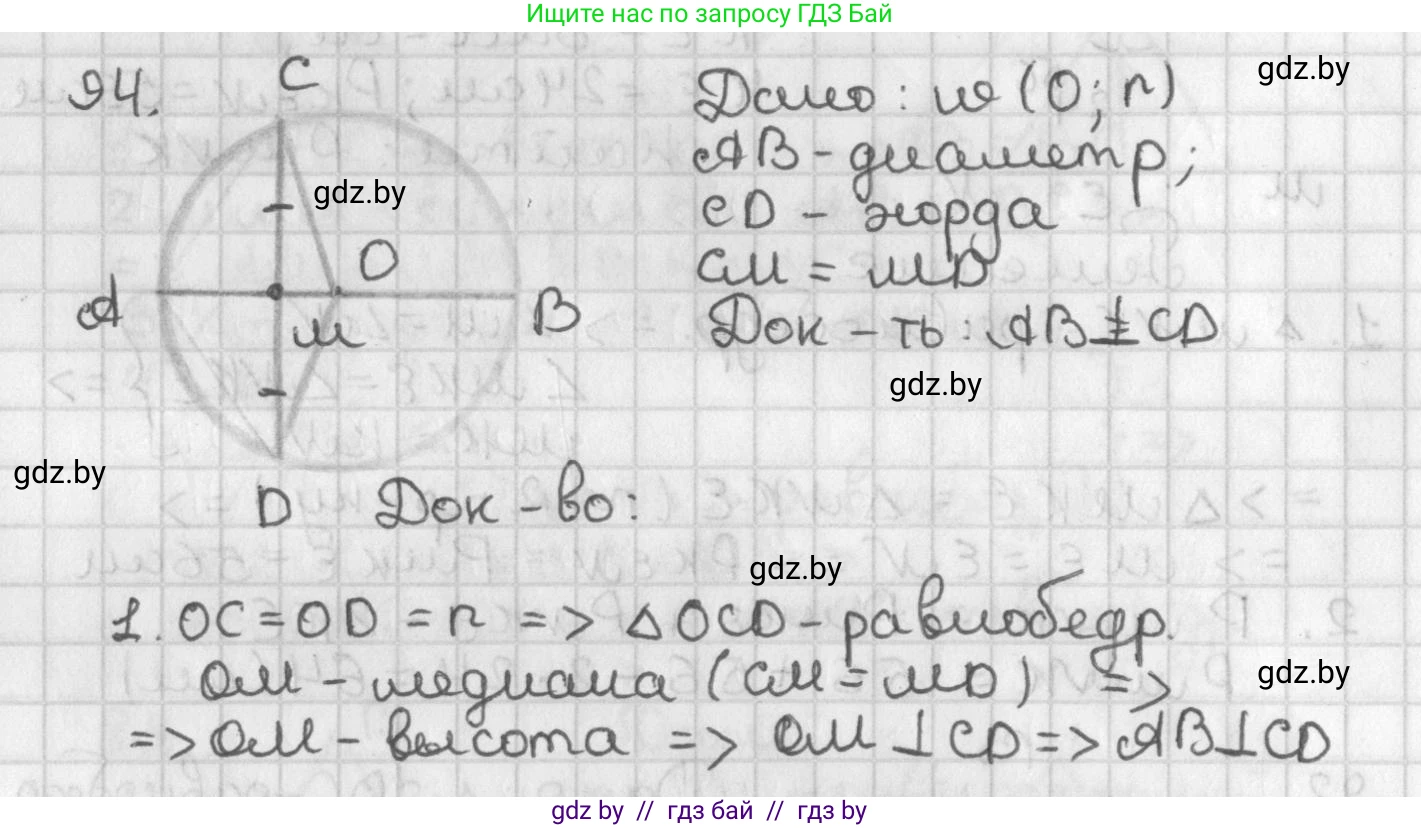 Ищите нас по запросу ГДЗ Бай
94.
C
gdz.by
O
A
M
B
D
Дано: ω (O; r)
gdz.by
AB - диаметр;
CD - хорда
CM = MD
Док - ть: AB ⊥ CD
gdz.by
gdz.by
Док - во:
gdz.by
1. OC = OD = r => △ OCD - равнобедр.
OM - медиана (CM = MD) =>
gdz.by
=> OM - высота => OM ⊥ CD => AB ⊥ CD
gdz by // гдз бай // гдз by